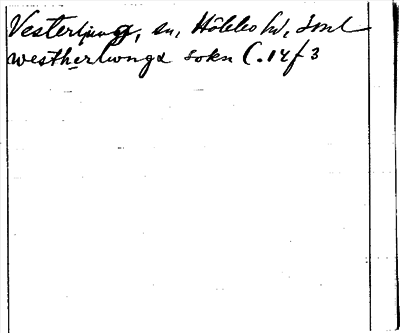 Vesterljung, sn, Hölebo hd, Sml
westherliunga sokn C.14 f 3